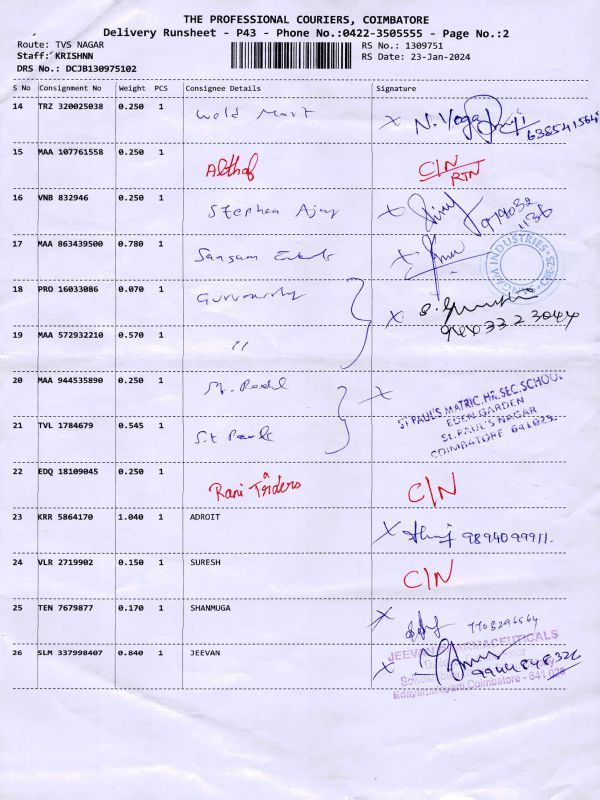 THE PROFESSIONAL COURIERS, COIMBATORE
Delivery Runsheet - P43 - Phone No.:0422-3505555 - Page No.:2
Route: TVS NAGAR
RS No.: 1309751
Staff: KRISHNN
RS Date: 23-Jan-2024
DRS No.: DCJB130975102
S No Consignment No Weight PCS Consignee Details Signature
14 TRZ 320025038 0.250 1 Weld Mart
15 MAA 107761558 0.250 1 Althaf C/N
RTN
16 VNB 832946 0.250 1 Stephen Ajay
17 MAA 863439500 0.780 1 Sangam
INDUSTRIES
CBE-25
18 PRO 16033086 0.070 1
944033 23044
19 MAA 572932210 0.570 1 11
20 MAA 944535890 0.250 1 St.
ST PAUL'S MATRIC.HR.SEC.SCHOOL
EDEN GARDEN
ST.PAUL'S NAGAR
COIMBATORE 641025.
21 TVL 1784679 0.545 1 St Pauls
22 EDQ 18109045 0.250 1 Rani Traders C/N
23 KRR 5864170 1.040 1 ADROIT 9894099911.
24 VLR 2719902 0.150 1 SURESH C/N
25 TEN 7679877 0.170 1 SHANMUGA 7708296564
26 SLM 337998407 0.840 1 JEEVAN
JEEVAN PHARMACEUTICALS
9944848326
Edayarpalayam, Coimbatore - 641 025